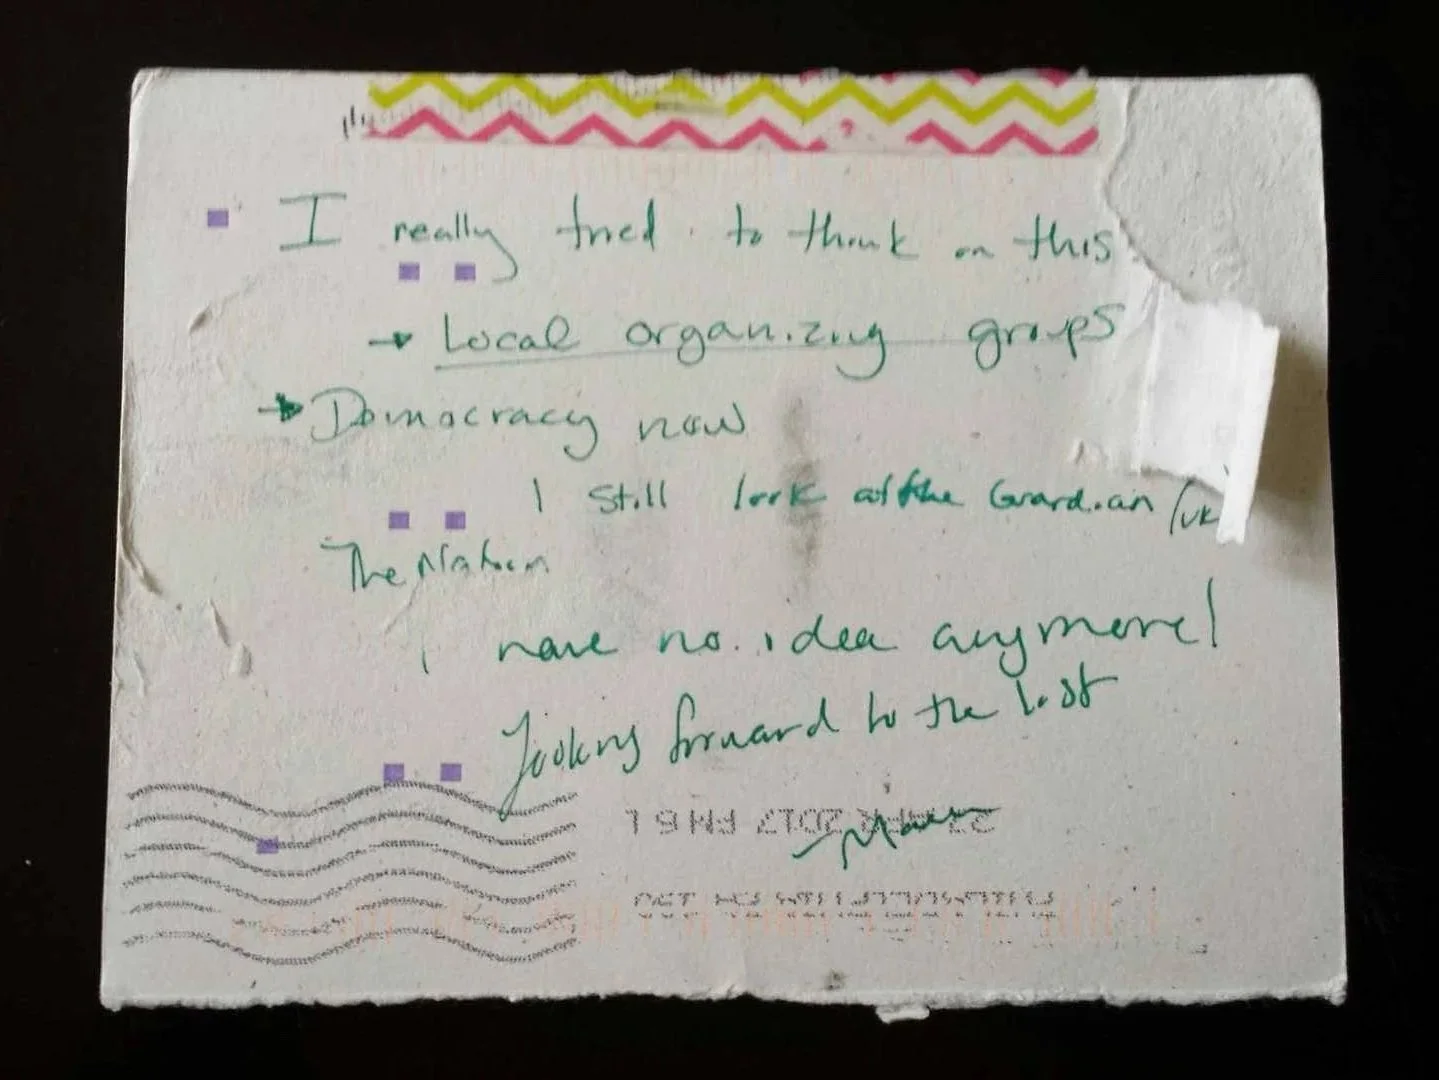 I really tried to think on this
→ Local organizing groups
→ Domocracy now
I still look at the Guardian /UK
The Nation
I have no idea anymore!
Looking forward to the list
27 APR 2017 PM 6 L